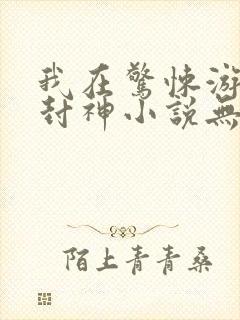 我在驚悚游
封神小說無
陌上青青桑